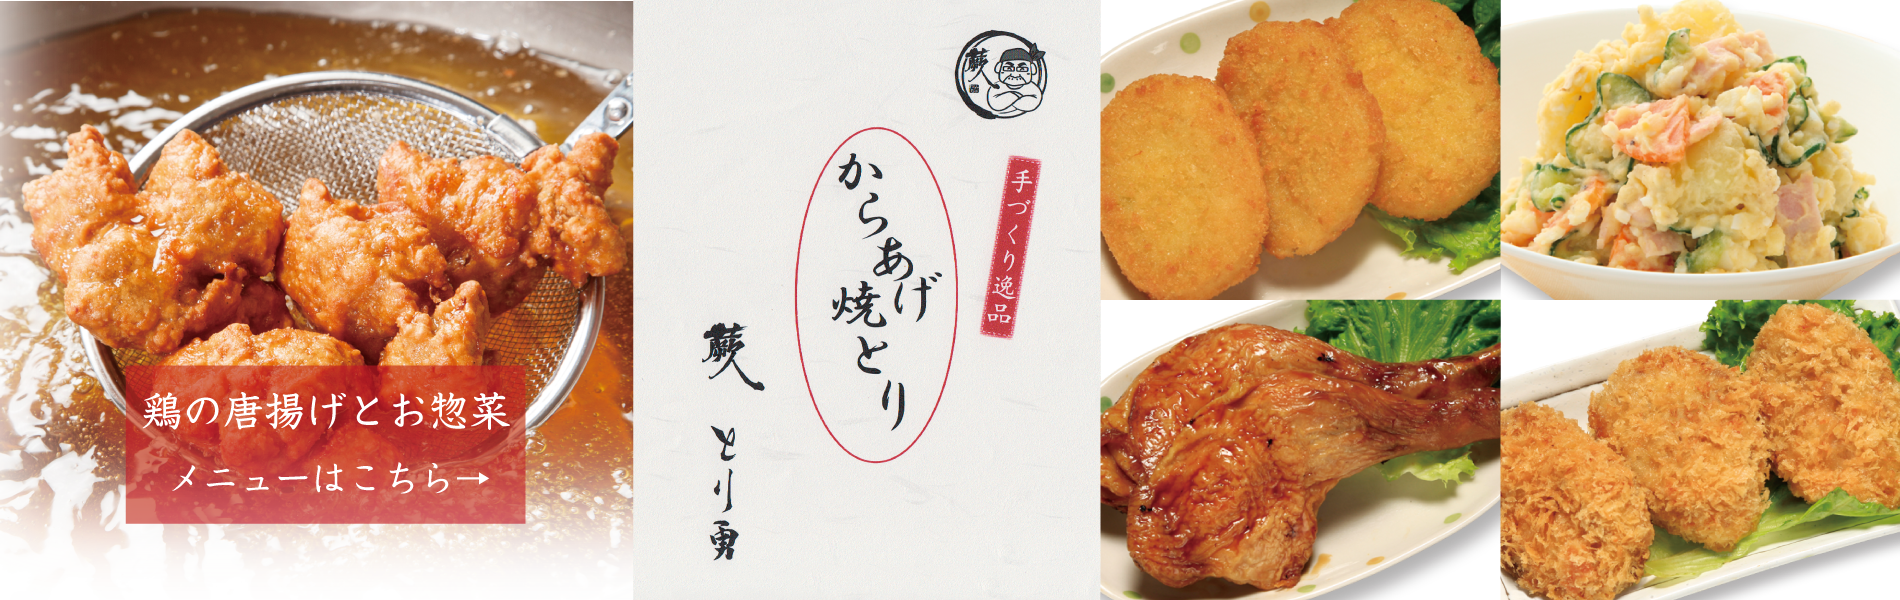 鶏の唐揚げとお惣菜
メニューはこちら→
蕨人
手づくり逸品
からあげ
焼とり
蕨人
とり勇